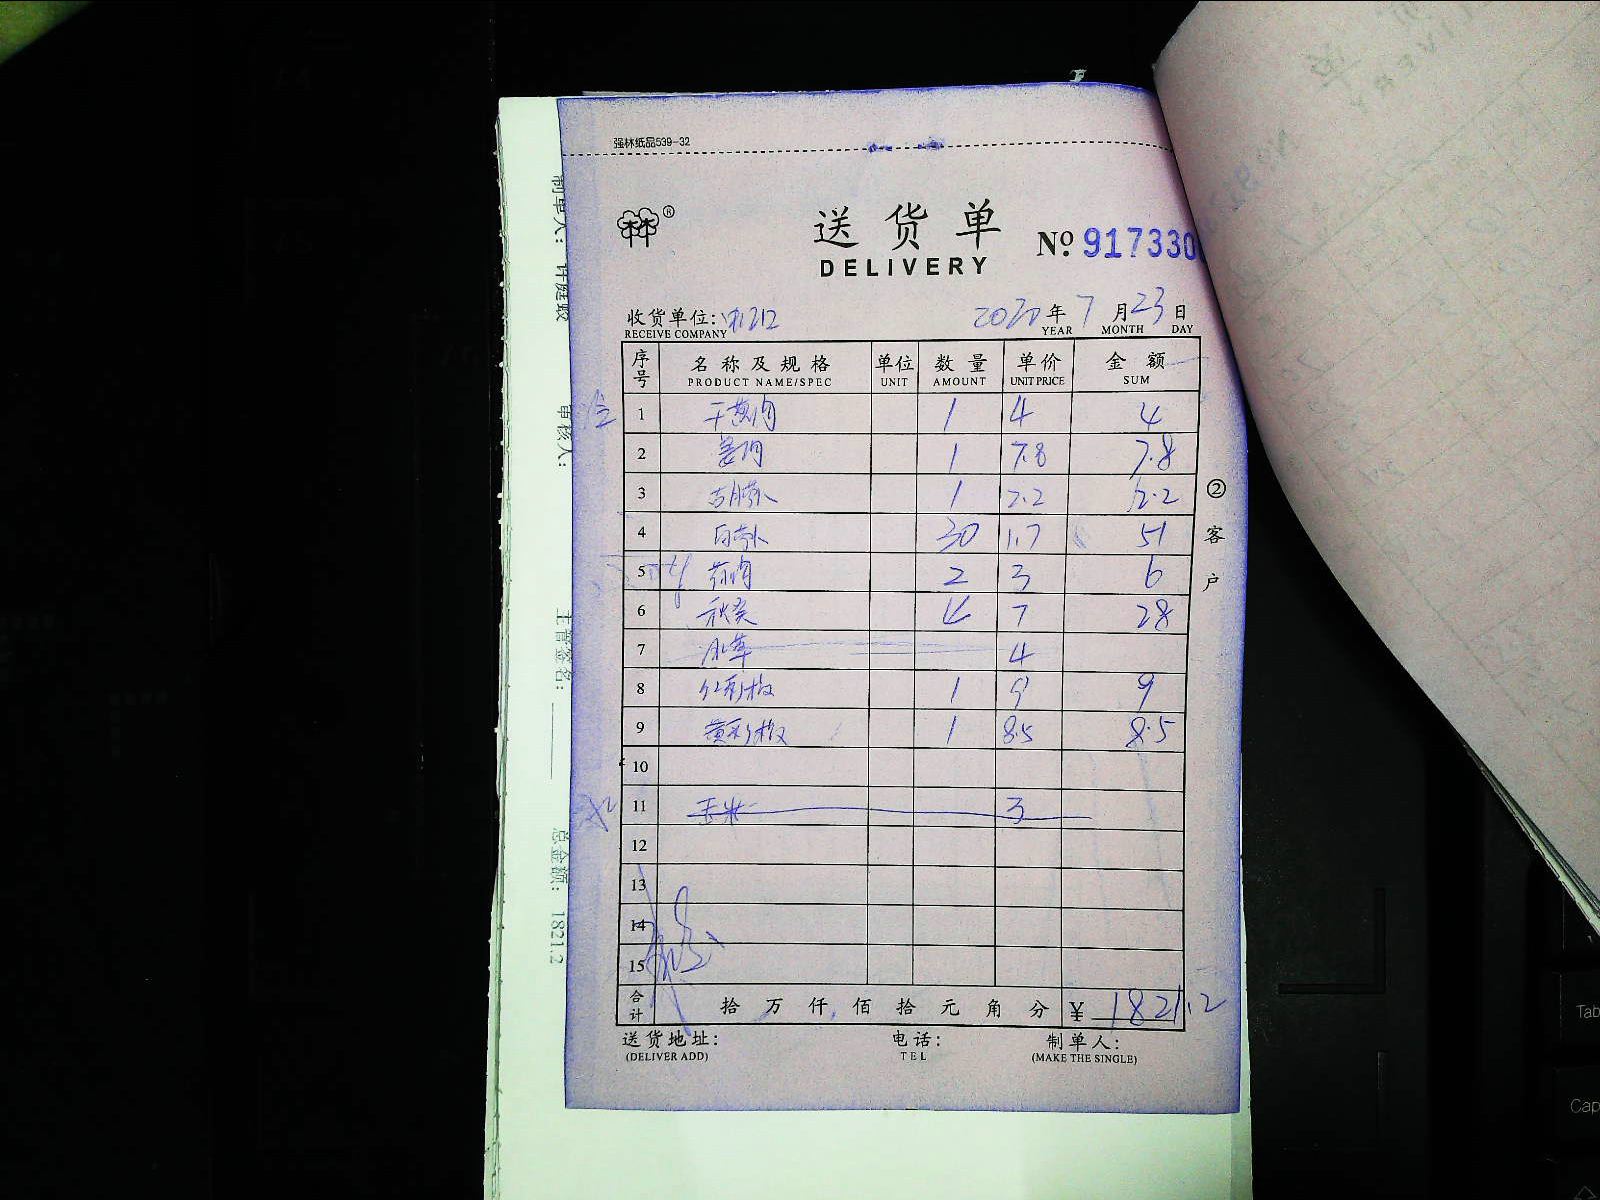 强林纸品539-32
®
送货单
DELIVERY
№ 917330
收货单位:
RECEIVE COMPANY
2020年7月23日
YEAR MONTH DAY
序号 名称及规格 单位 数量 单价 金额
PRODUCT NAME/SPEC UNIT AMOUNT UNIT PRICE SUM
1 干葱肉 1 4 4
2 姜肉 1 7.8 7.8
3 1 2.2 2.2
4 白萝卜 30 1.7 51
5 2 3 6
6 秋葵 4 7 28
7 4
8 红彩椒 1 9 9
9 黄彩椒 1 8.5 8.5
10
11 玉米 3
12
13
14
15
合计 拾万仟佰拾元角分 ¥ 1821.2
送货地址: 电话: 制单人:
(DELIVER ADD) TEL (MAKE THE SINGLE)
②客户
制单人:
审核人:
主管签名:
总金额: 1821.2
Tab
Cap